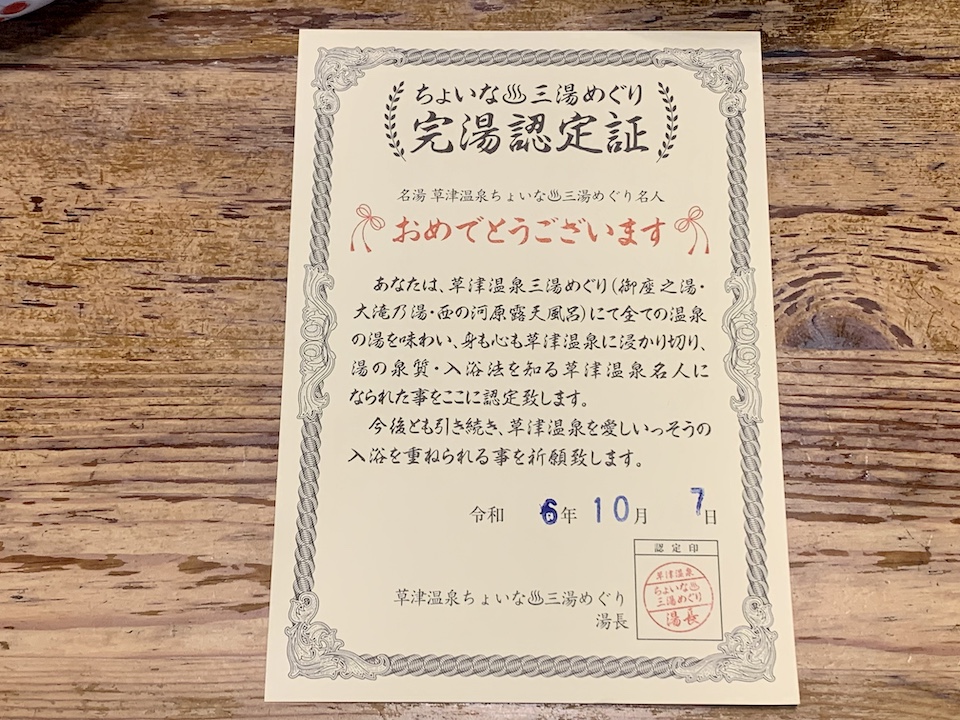 ちょいな♨三湯めぐり
完湯認定証
名湯 草津温泉ちょいな♨三湯めぐり名人
おめでとうございます
あなたは、草津温泉三湯めぐり(御座之湯・
大滝乃湯・西の河原露天風呂)にて全ての温泉
の湯を味わい、身も心も草津温泉に浸かり切り、
湯の泉質・入浴法を知る草津温泉名人に
なられた事をここに認定致します。
今後とも引き続き、草津温泉を愛しいっそうの
入浴を重ねられる事を祈願致します。
令和 6年 10月 7日
認定印
草津温泉
ちょいな♨
三湯めぐり
湯長
草津温泉ちょいな♨三湯めぐり
湯長